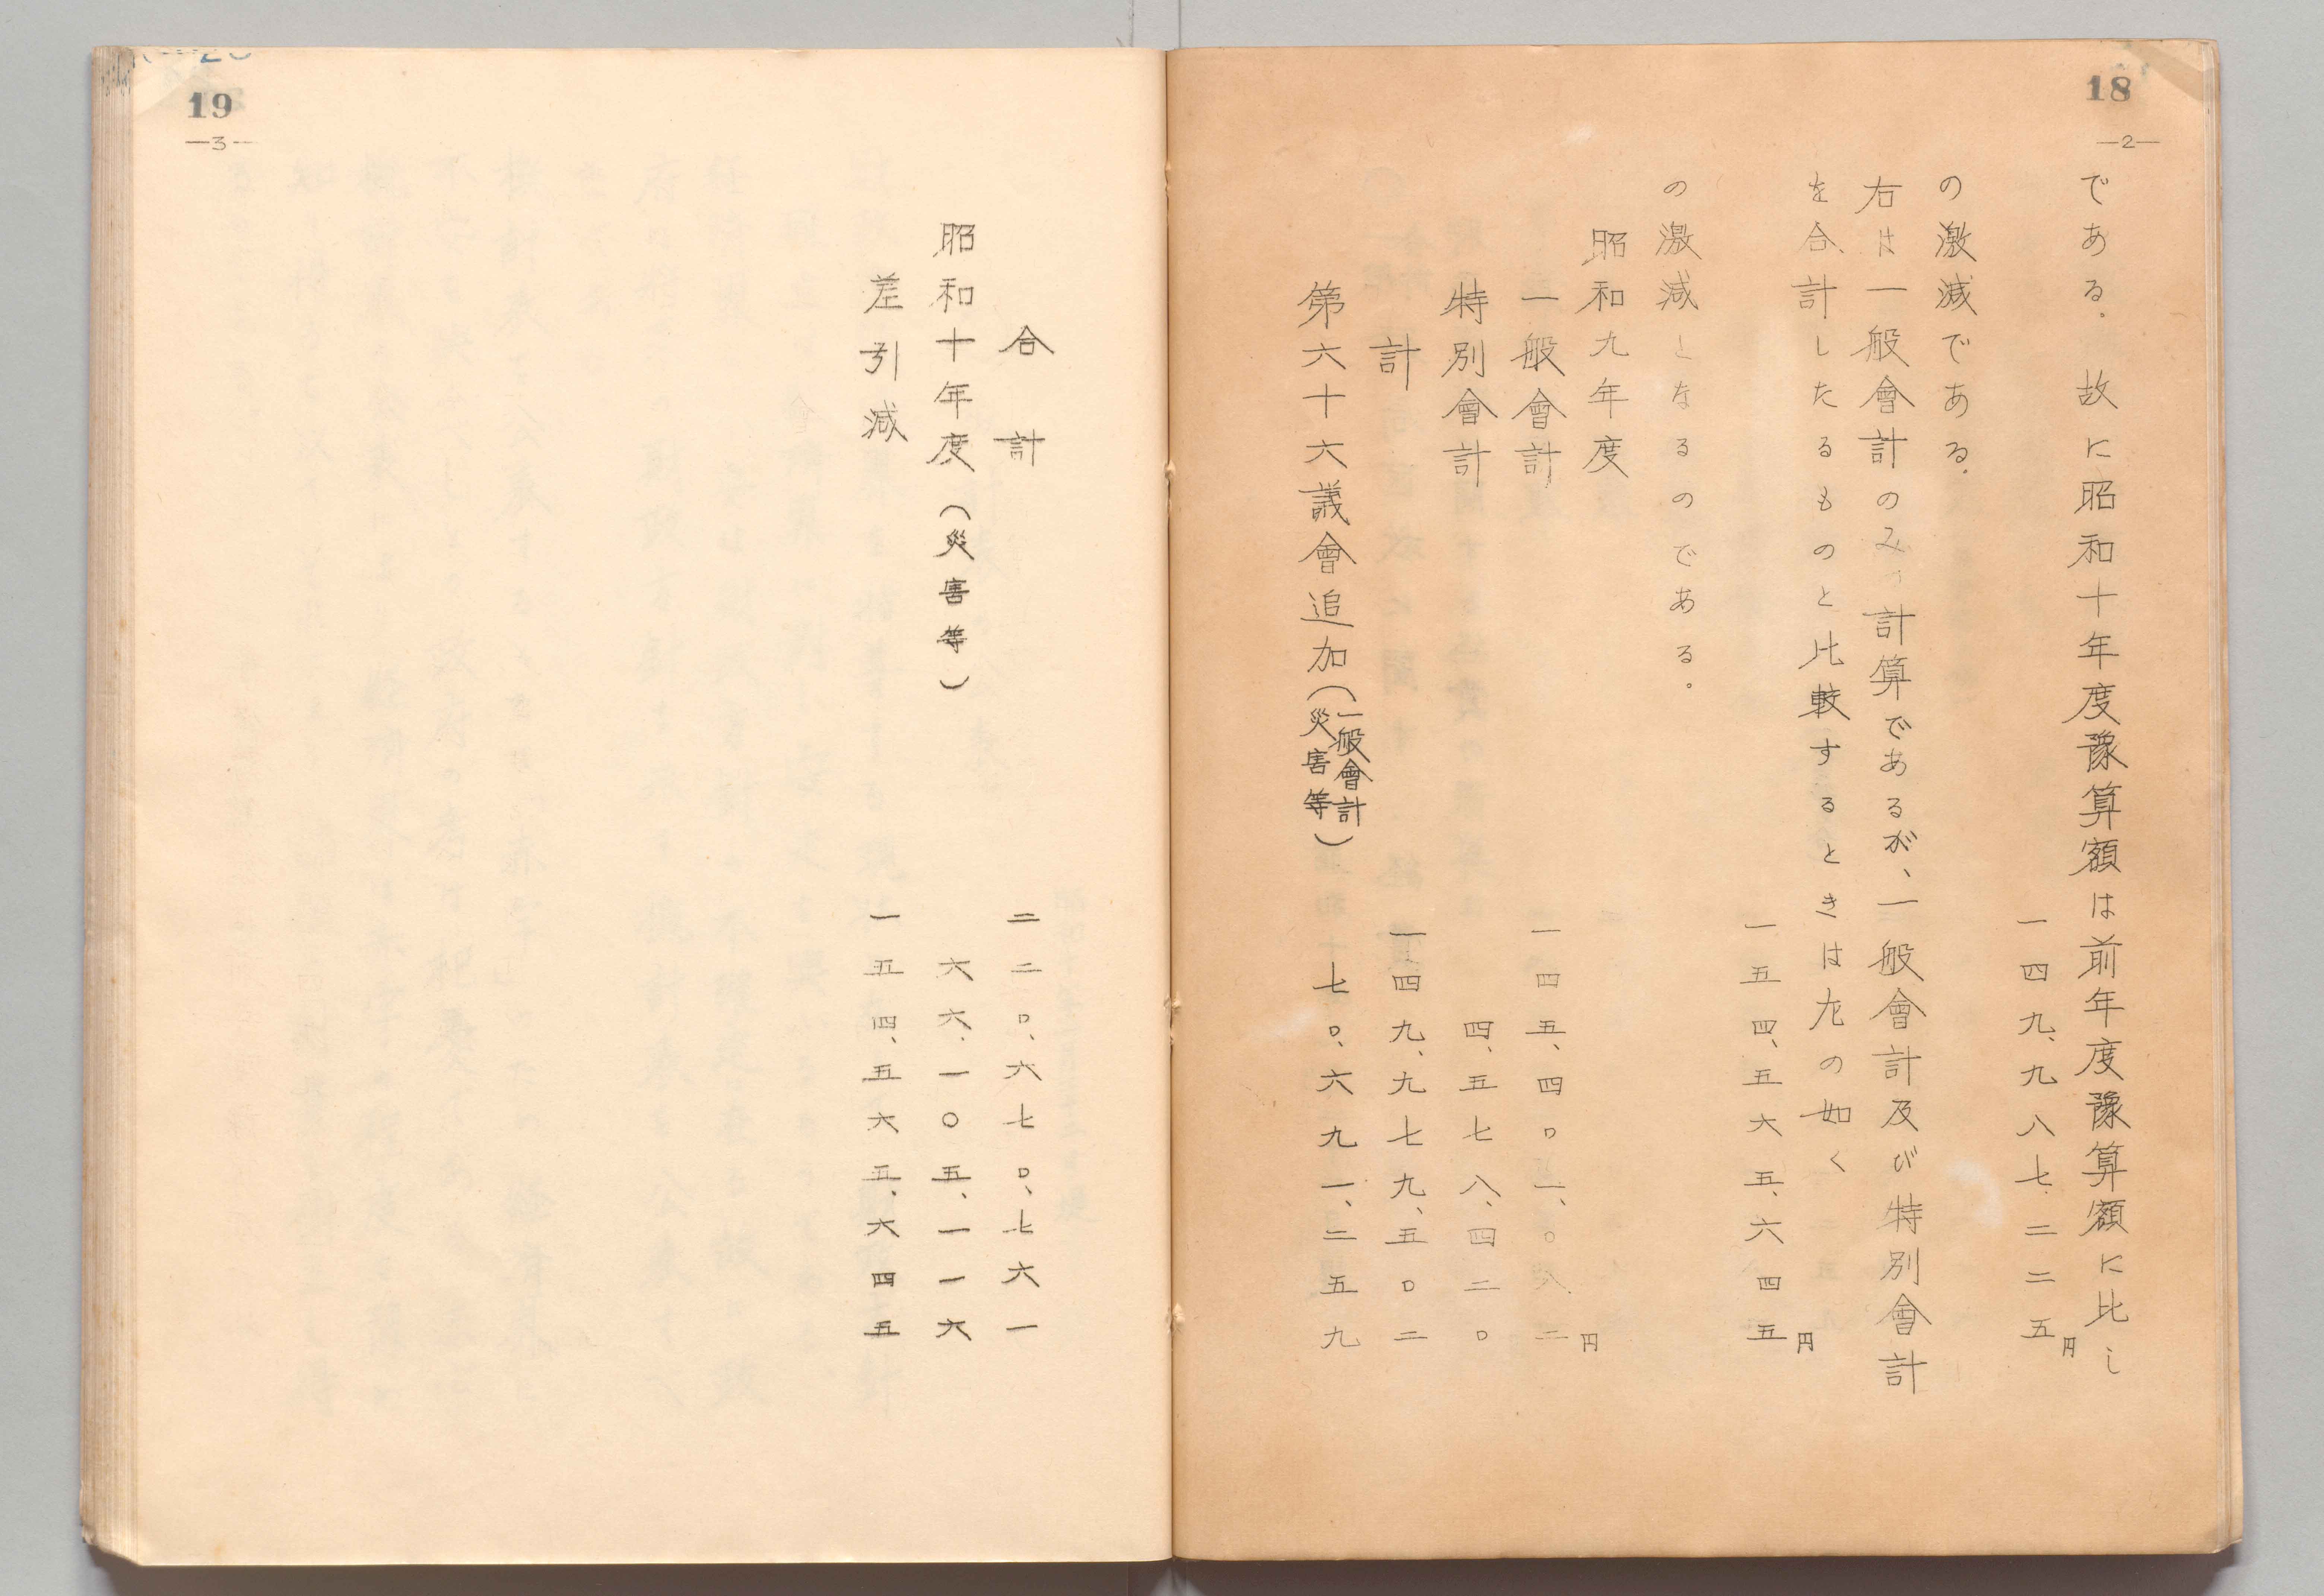 18
—2—
である。故に昭和十年度豫算額は前年度豫算額に比し
一四九、九八七、二二五円
の激減である。
右は一般會計のみの計算であるが、一般會計及び特別會計
を合計したるものと比較するときは左の如く
一五四、五六五、六四五円
の激減となるのである。
昭和九年度
一般會計　一四五、四〇一、〇八二円
特別會計　四、五七八、四二〇
計　一四九、九七九、五〇二
第六十六議會追加（一般會計災害等）　七〇、六九一、二五九
19
—3—
合計　二二〇、六七〇、七六一
昭和十年度（災害等）　六六、一〇五、一一六
差引減　一五四、五六五、六四五